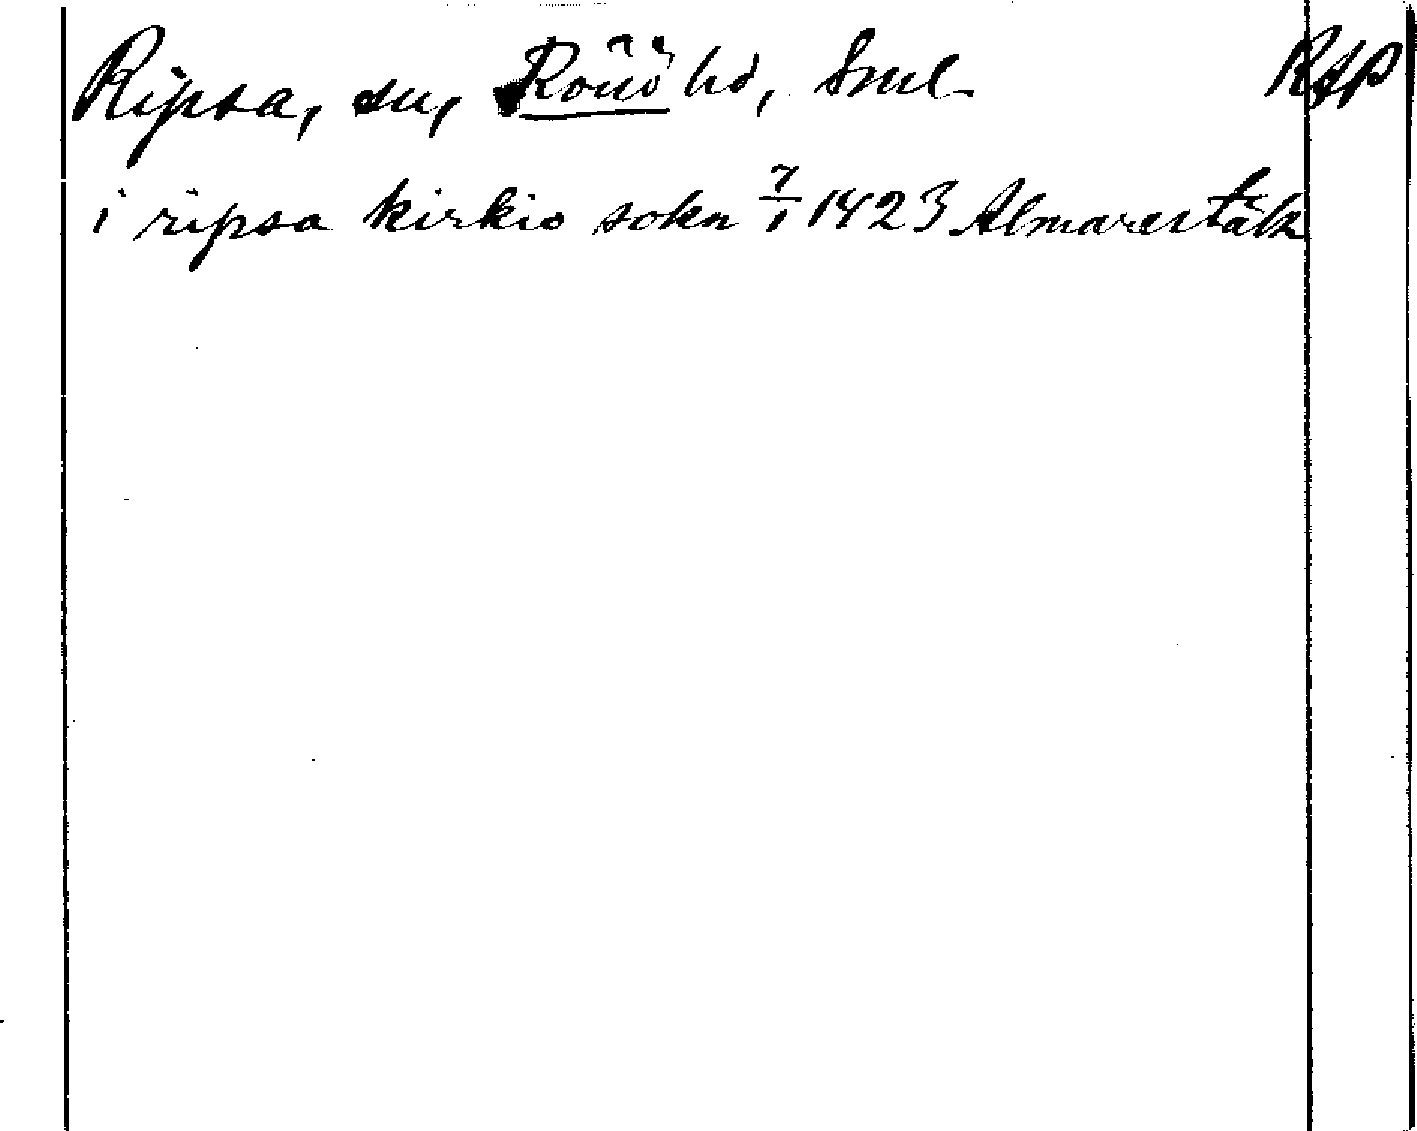 Ripsa, sn, Rönö hd, Sml RAp
i ripsa kirkio sokn 7/1 1423 Almarestäk